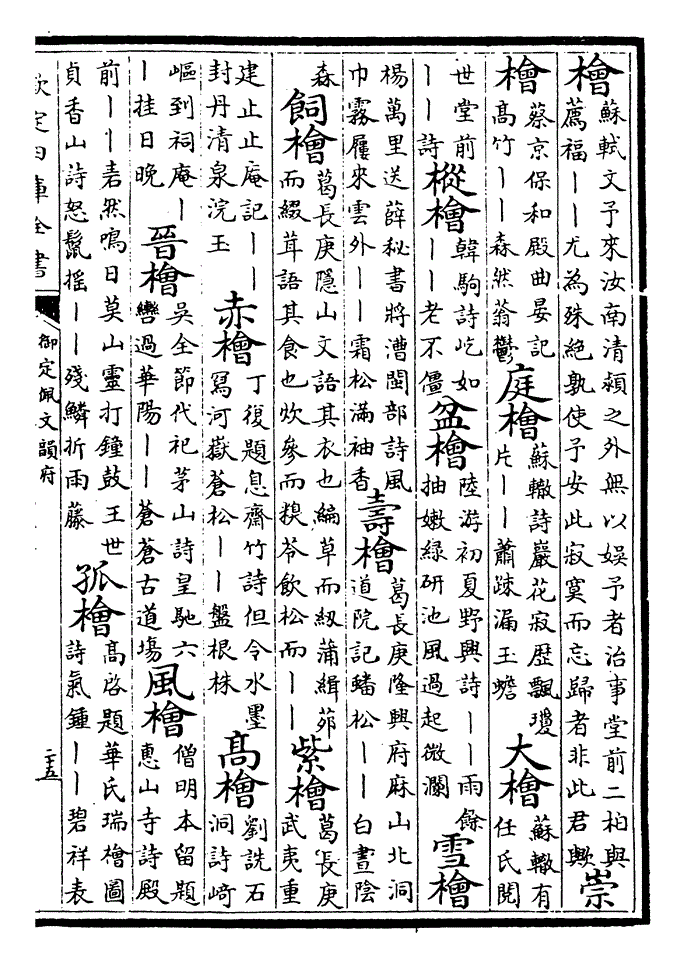 檜蘇軾文予來汝南清潁之外無以娛予者治事堂前二柏與薦福丨丨尤為殊絶孰使予安此寂寞而忘歸者非此君歟崇
檜蔡京保和殿曲晏記高竹丨丨森然蓊鬱庭檜蘇轍詩巖花寂歴飄瓊片丨丨蕭疎漏玉蟾大檜蘇轍有任氏閲
世堂前丨丨詩樅檜韓駒詩屹如丨丨老不僵盆檜陸游初夏野興詩丨丨雨餘抽嫩緑研池風過起微瀾雪檜
楊萬里送薛秘書將漕閩部詩風巾霧屨來雲外丨丨霜松滿袖香壽檜葛長庚隆興府麻山北洞道院記蟠松丨丨白晝陰
森飼檜葛長庚隱山文語其衣也編草而紉蒲緝茆而綴茸語其食也炊參而糗苓飲松而丨丨紫檜葛長庚武夷重
建止止庵記丨丨封丹清泉浣玉赤檜丁復題息齋竹詩但令水墨冩河嶽蒼松丨丨盤根株高檜劉詵石洞詩﨑
嶇到祠庵丨丨挂日晚晉檜吳全節代祀茅山詩皇馳六轡過華陽丨丨蒼蒼古道塲風檜僧明本留題惠山寺詩殿
前丨丨砉然鳴日莫山靈打鐘鼓王世貞香山詩怒鬛摇丨丨殘鱗折雨藤孤檜高啓題華氏瑞檜圖詩氣鍾丨丨碧祥表
欽定四庫全書
御定佩文韻府
二十五